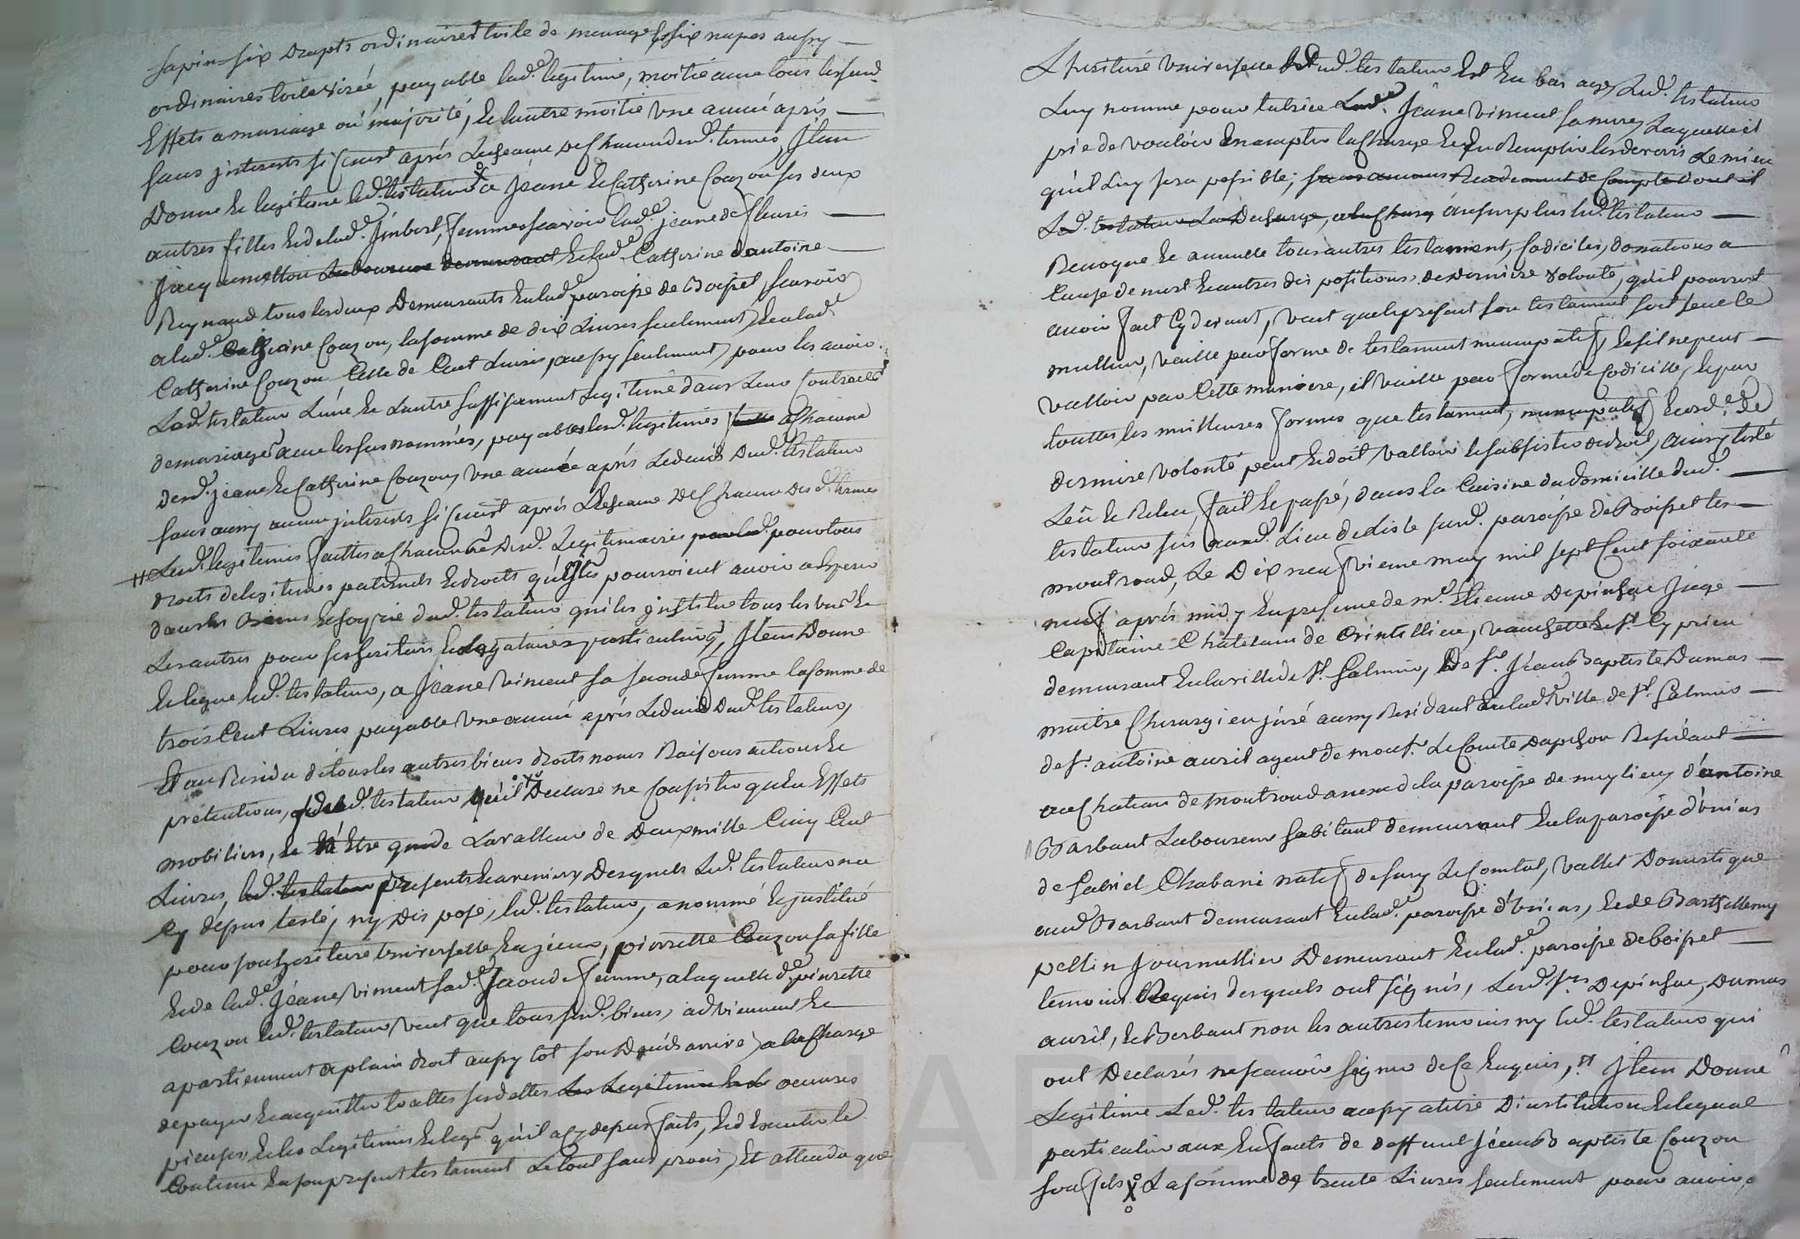 sapin six draps ordinaires toile de menage & six napes aussy
ordinaires toile virée, payable lad.e legitime, moitié avec tous lesd.
Effets a mariage ou majorité, & l'autre moitie une année après
sans jnterests si ce n'est après Lecheance de chacun desd. termes, Jtem
Donne & legitime led. testateur a Jeane & Catherine Couzon ses deux
autres filles & de lad.e Jmbert, femmes scavoir lad.e jeane de fleurie
Jacquemetton Laboureur demeurant & lad.e Catherine d'antoine
Reynaud tous les deux Demeurants en lad.e paroisse de Boisset scavoir
a lad.e Catherine Couzon, la somme de dix Livres seulement, & a lad.e
Catherine Couzon Celle de Cent Livres, aussy seulement, pour les avoir
Led. testateur L'une & L'autre suffisament Legitimé dans Leur Contracts
de mariages avec les susnommés, payables lesd. legitimes a Chacune
desd. jeane & Catherine Couzon, une année après Le deceds dud. testateur
sans aussy aucun jnterests si ce n'est après L'echeance de Chacun des d. termes
Lesd. legitimes faittes a chacun desd. Legitimaires pour tous
droits de legitimes paternels & droits qu'elles pourroient avoir a esperer
dans les Biens & hoyrie dud. testateur qui les jnstitue tous les uns &
Les autres pour ses heritiers & Legataires particuliers, Jtem Donne
& legue led. testateur, a Jeane Viment sa seconde femme la somme de
trois Cent Livres payable une année après Le deceds dud. testateur,
Et au Residu de tous les autres biens droits noms Raisons actions &
pretentions, dud. testateur qu'il Declare ne Consister qu'en Effets
mobiliers, & n'Etre que de La valleur de Deux mille Cinq Cent
Livres, led. testateur presents & avenirs Desquels Led. testateur na
Cy depus testé, ny Disposé, led. testateur, a nommé & jnstitué
pour son heritiere universelle & en jceux, pierrette Couzon sa fille
& de lad.e Jeane viment sad. seconde femme, a laquelle d.e pierrette
Couzon led. testateur veut que tous sesd. biens, adviennent &
apartiennent a plain droit aussy tot son Deceds arrivé a la Charge
de payer & acquitter touttes ses dettes Les Legitimes & Les oeuvres
pieuses & les Legitimes & legs qu'il a cy depus faits, & d'Executer le
Contenu En son present testament Le tout sans procès, Et attendu que
L'heritiere universelle dud. testateur Est En bas age, Led. testateur
Luy nomme pour tutrice Lad.e Jeane viment sa mere, Laquelle il
prie de vouloir En accepter la Charge & En Remplir les devoirs Le mieux
qu'il Luy sera possible, sans aucuns Rendement de Compte dont il
Led. testateur La Decharge, a la Charge au surplus led. testateur
Revoque & annulle tous autres testament, Codiciles, donations a
Cause de mort & autres dispositions de derniere volonté, qu'il pourroit
avoir fait Cy devant, veut que le present son testament soit seul le
meilleur, vaille par forme de testament nuncupatif, & s'il ne peut
valloir par Cette maniere, il vaille par forme de Codicille, & par
touttes les meilleures formes que testament, nuncupatif & ord.ce de
derniere volonté peut & doit, valloir & subsister de droit, ainsy testé
Leu & Releu, fait & passé, dans la Cuisine du domicille dud.
testateur sis aud. Lieu de susd. paroisse de Boisset les
montrond, Le Dix neufvieme may mil sept Cent soixante
neuf après midy En presence de m.e Etienne Depinhac Juge
Capitaine Chatelain de Cyprien
demeurant En la ville de S.t Galmier, De s.r Jean Baptiste Dumas
maitre Chirurgien juré aussy Residant En lad.e ville de S.t Galmier
de s.r antoine avril agent de mons.r Le Comte Dapchon Residant
au Chateau de Montrond annexe de la paroisse de meylieu, d'antoine
Barbant Laboureur habitant demeurant En la paroisse d'Unias
de Gabriel Chabanè natif de sury Le Comtal, vallet Domestique
aud. Barbant demeurant En lad.e paroisse d'Unias, & de Barthellemy
pellin Journallier Demeurant En lad.e paroisse de boisset
temoins Requis desquels ont signés, Lesd. s.rs Depinhac, Dumas
avril, & Barbant non les autres temoins ny led. testateur qui
ont Declarés ne scavoir signer de ce Enquis, Jtem Donne
Legitime Led. testateur aussy a titre D'institution & legual
particulier aux Enfants de deffunt Jean Baptiste Couzon
son fils La somme de trente Livres seulement pour avoir